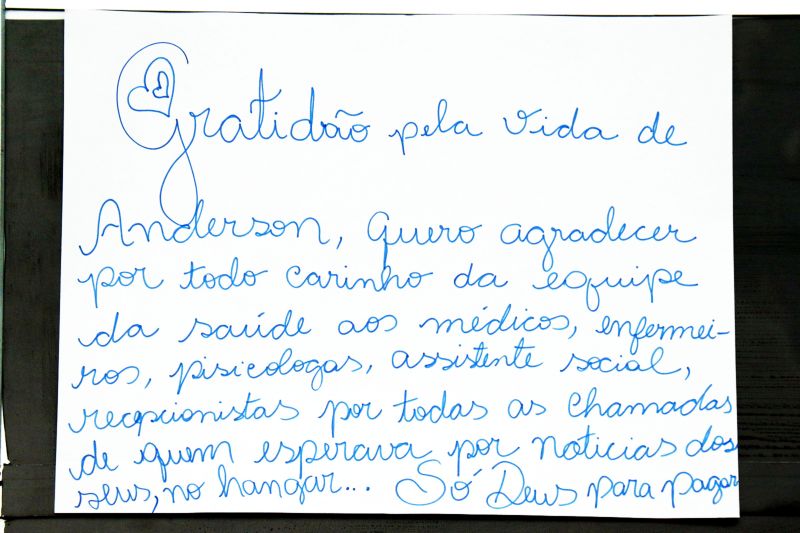 Gratidão pela vida de
Anderson, quero agradecer
por todo carinho da equipe
da saúde aos médicos, enfermei-
ros, pisicologas, assistente social,
recepcionistas por todas as chamadas
de quem esperava por noticias dos
seus, no hangar... Só Deus para pagar